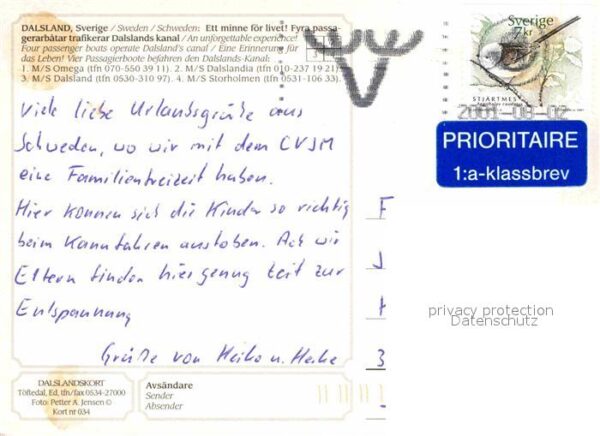 DALSLAND, Sverige / Sweden / Schweden: Ett minne för livet! Fyra passa-
gerarbåtar trafikerar Dalslands kanal / An unforgettable experience!
Four passenger boats operate Dalsland's canal / Eine Erinnerung für
das Leben! Vier Passagierboote befahren den Dalslands-Kanal:
1. M/S Omega (tfn 070-550 39 11). 2. M/S Dalslandia (tfn 010-237 19 21)
3. M/S Dalsland (tfn 0530-310 97). 4. M/S Storholmen (tfn 0531-106 33).
Sverige
7 kr
STJÄRTMES
2001-08-02
PRIORITAIRE
1:a-klassbrev
Viele liebe Urlaubsgrüße aus
Schweden, wo wir mit dem CVJM
eine Familienfreizeit haben.
Hier können sich die Kinder so richtig
beim Kanufahren austoben. Ach wir
Eltern finden hier genug Zeit zur
Entspannung
Grüße von Heiko u. Heike
F
J
3
privacy protection
Datenschutz
DALSLANDSKORT
Töftedal, Ed, tfn/fax 0534-27000
Foto: Petter A. Jensen ©
Kort nr 034
Avsändare
Sender
Absender